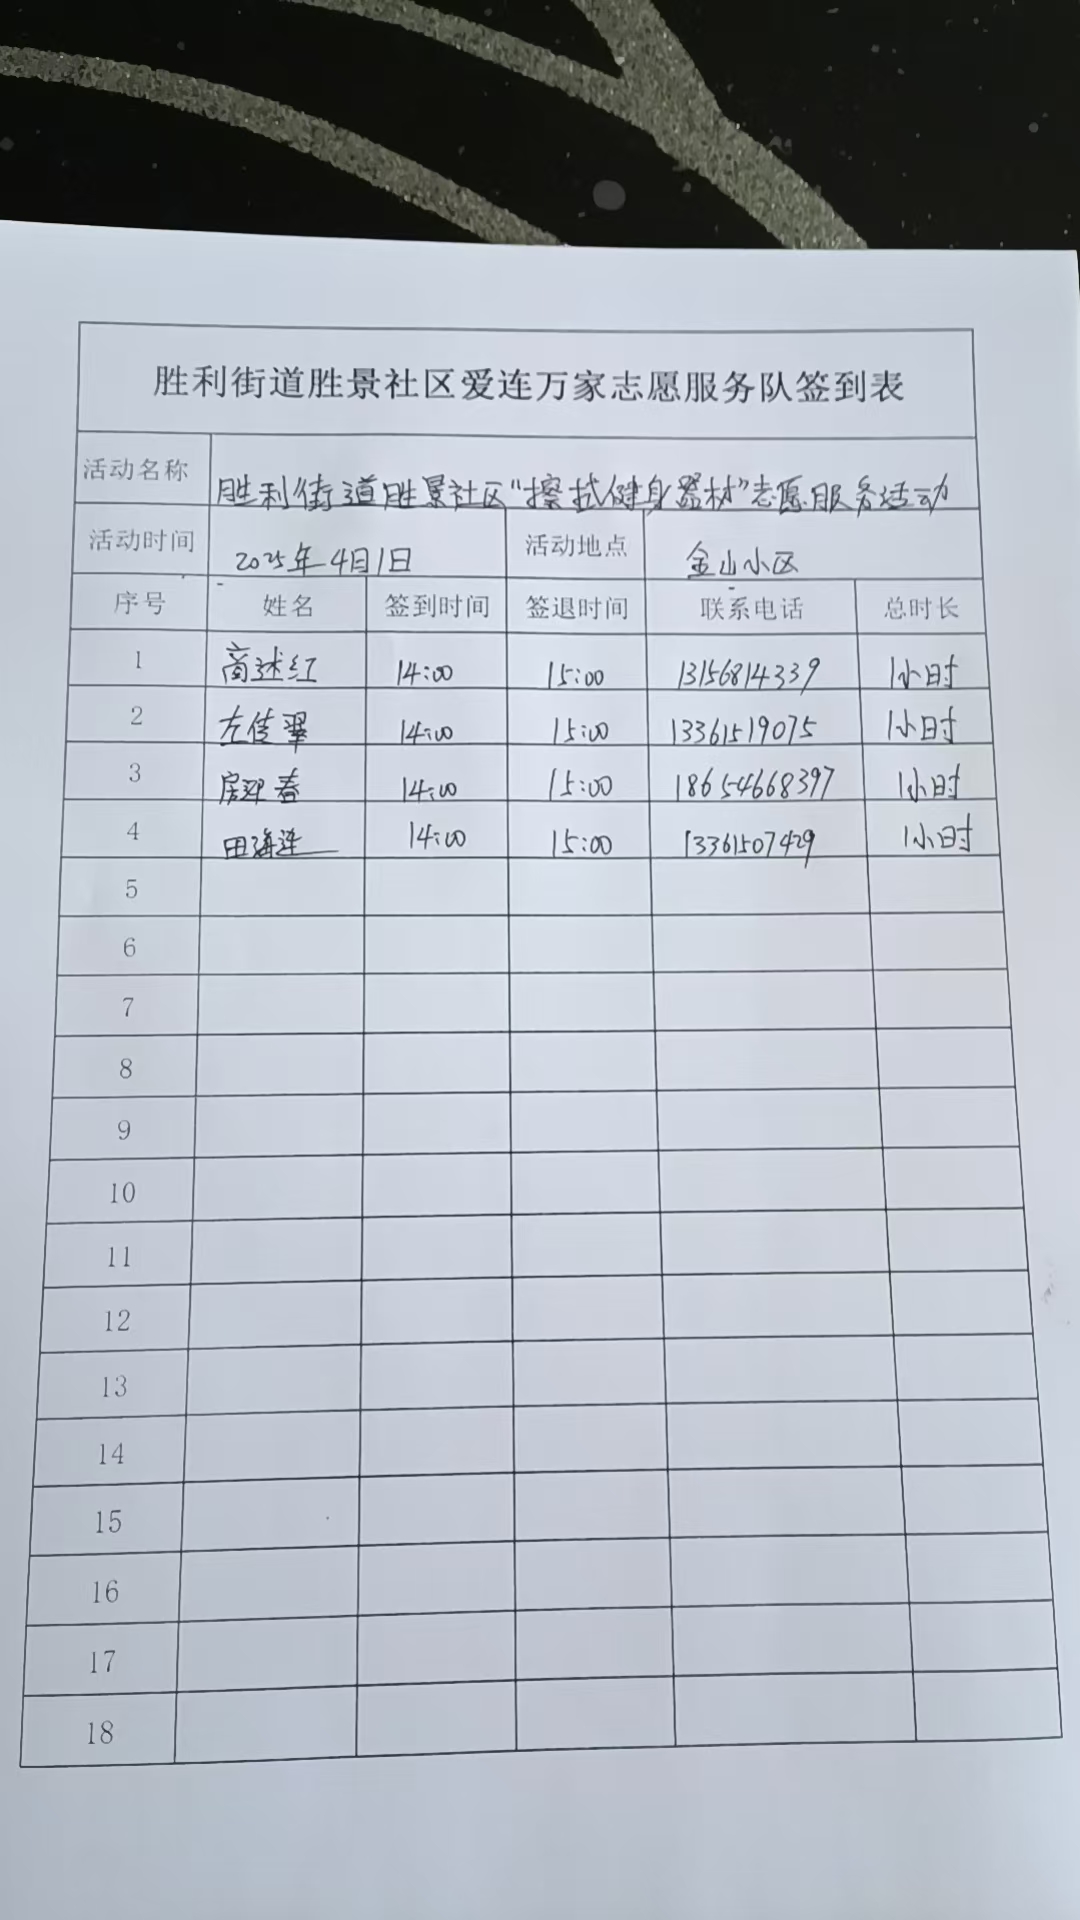 胜利街道胜景社区爱连万家志愿服务队签到表
活动名称 胜利街道胜景社区“擦拭健身器材”志愿服务活动
活动时间 2025年4月1日 活动地点 金山小区
序号 姓名 签到时间 签退时间 联系电话 总时长
1 商述红 14:00 15:00 13156814339 1小时
2 左传翠 14:00 15:00 13361519075 1小时
3 房迎春 14:00 15:00 18654668397 1小时
4 田海莲 14:00 15:00 13361507429 1小时
5
6
7
8
9
10
11
12
13
14
15
16
17
18